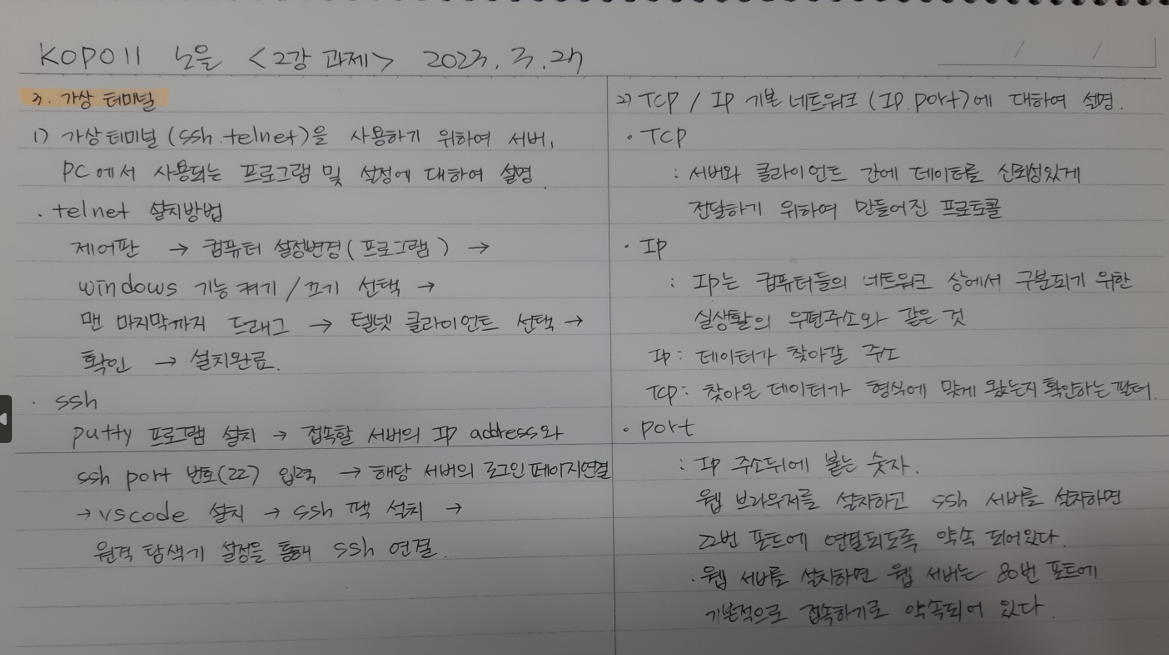 KOPO11 노을 <2강 과제> 2023. 3. 27
3. 가상 터미널
1) 가상터미널 (ssh.telnet)을 사용하기 위하여 서버,
PC에서 사용되는 프로그램 및 설정에 대하여 설명
· telnet 설치방법
제어판 → 컴퓨터 설정변경(프로그램) →
windows 기능 켜기/끄기 선택 →
맨 마지막까지 드래그 → 텔넷 클라이언트 선택 →
확인 → 설치완료.
· ssh
putty 프로그램 설치 → 접속할 서버의 IP address와
ssh port 번호(22) 입력 → 해당 서버의 로그인페이지연결
→ vscode 설치 → ssh 팩 설치 →
원격 탐색기 설정을 통해 ssh 연결.
2) TCP / IP 기본 네트워크 (IP. port)에 대하여 설명.
· TCP
: 서버와 클라이언트 간에 데이터를 신뢰성있게
전달하기 위하여 만들어진 프로토콜
· IP
: IP는 컴퓨터들의 네트워크 상에서 구분되기 위한
실상활의 우편주소와 같은 것
IP: 데이터가 찾아갈 주소
TCP: 찾아온 데이터가 형식에 맞게 왔는지 확인하는 필터.
· port
: IP 주소뒤에 붙는 숫자.
웹 브라우저를 설치하고 ssh 서버를 설치하면
22번 포트에 연결되도록 약속 되어있다.
· 웹 서버를 설치하면 웹 서버는 80번 포트에
기본적으로 접속하기로 약속되어 있다.